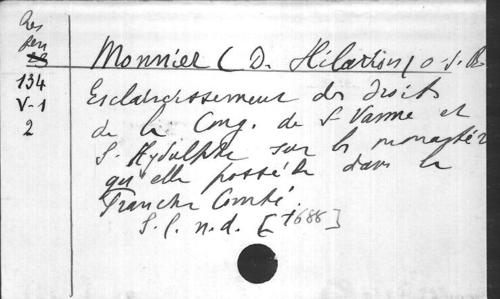 Res
pen
134
V-1
2
Monnier (D. Hilarion) o.s.B
Esclaircissement des droits
de la Cong. de S Vanne et
S. Hydulphe sur les monastèr
qu'elle possède dans la
Franche Comté.
S. l. n. d. [1688]